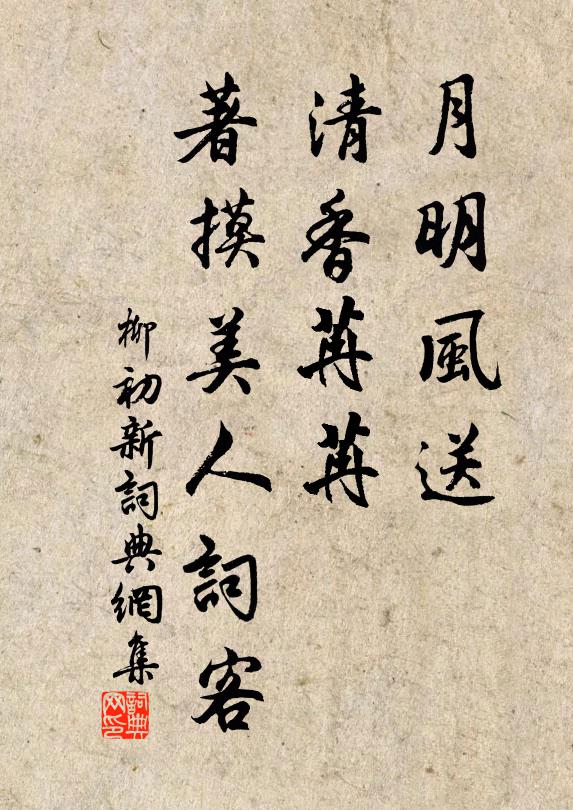 月明風送
清香苒苒
著摸美人詞客
柳初新詞典網集
詞典网印